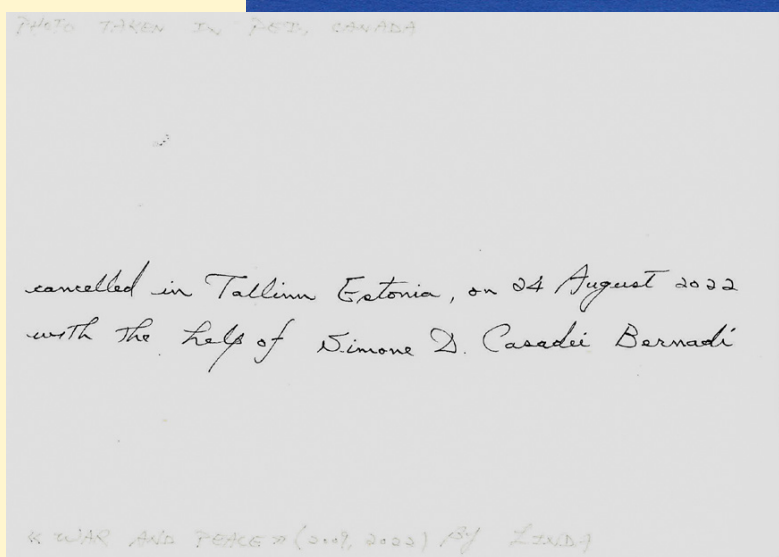 PHOTO TAKEN IN PEI, CANADA
cancelled in Tallinn Estonia, on 24 August 2022
with the help of Simone D. Casadei Bernadi
« WAR AND PEACE » (2009, 2022) BY LINDA